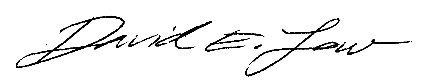 David E. Low